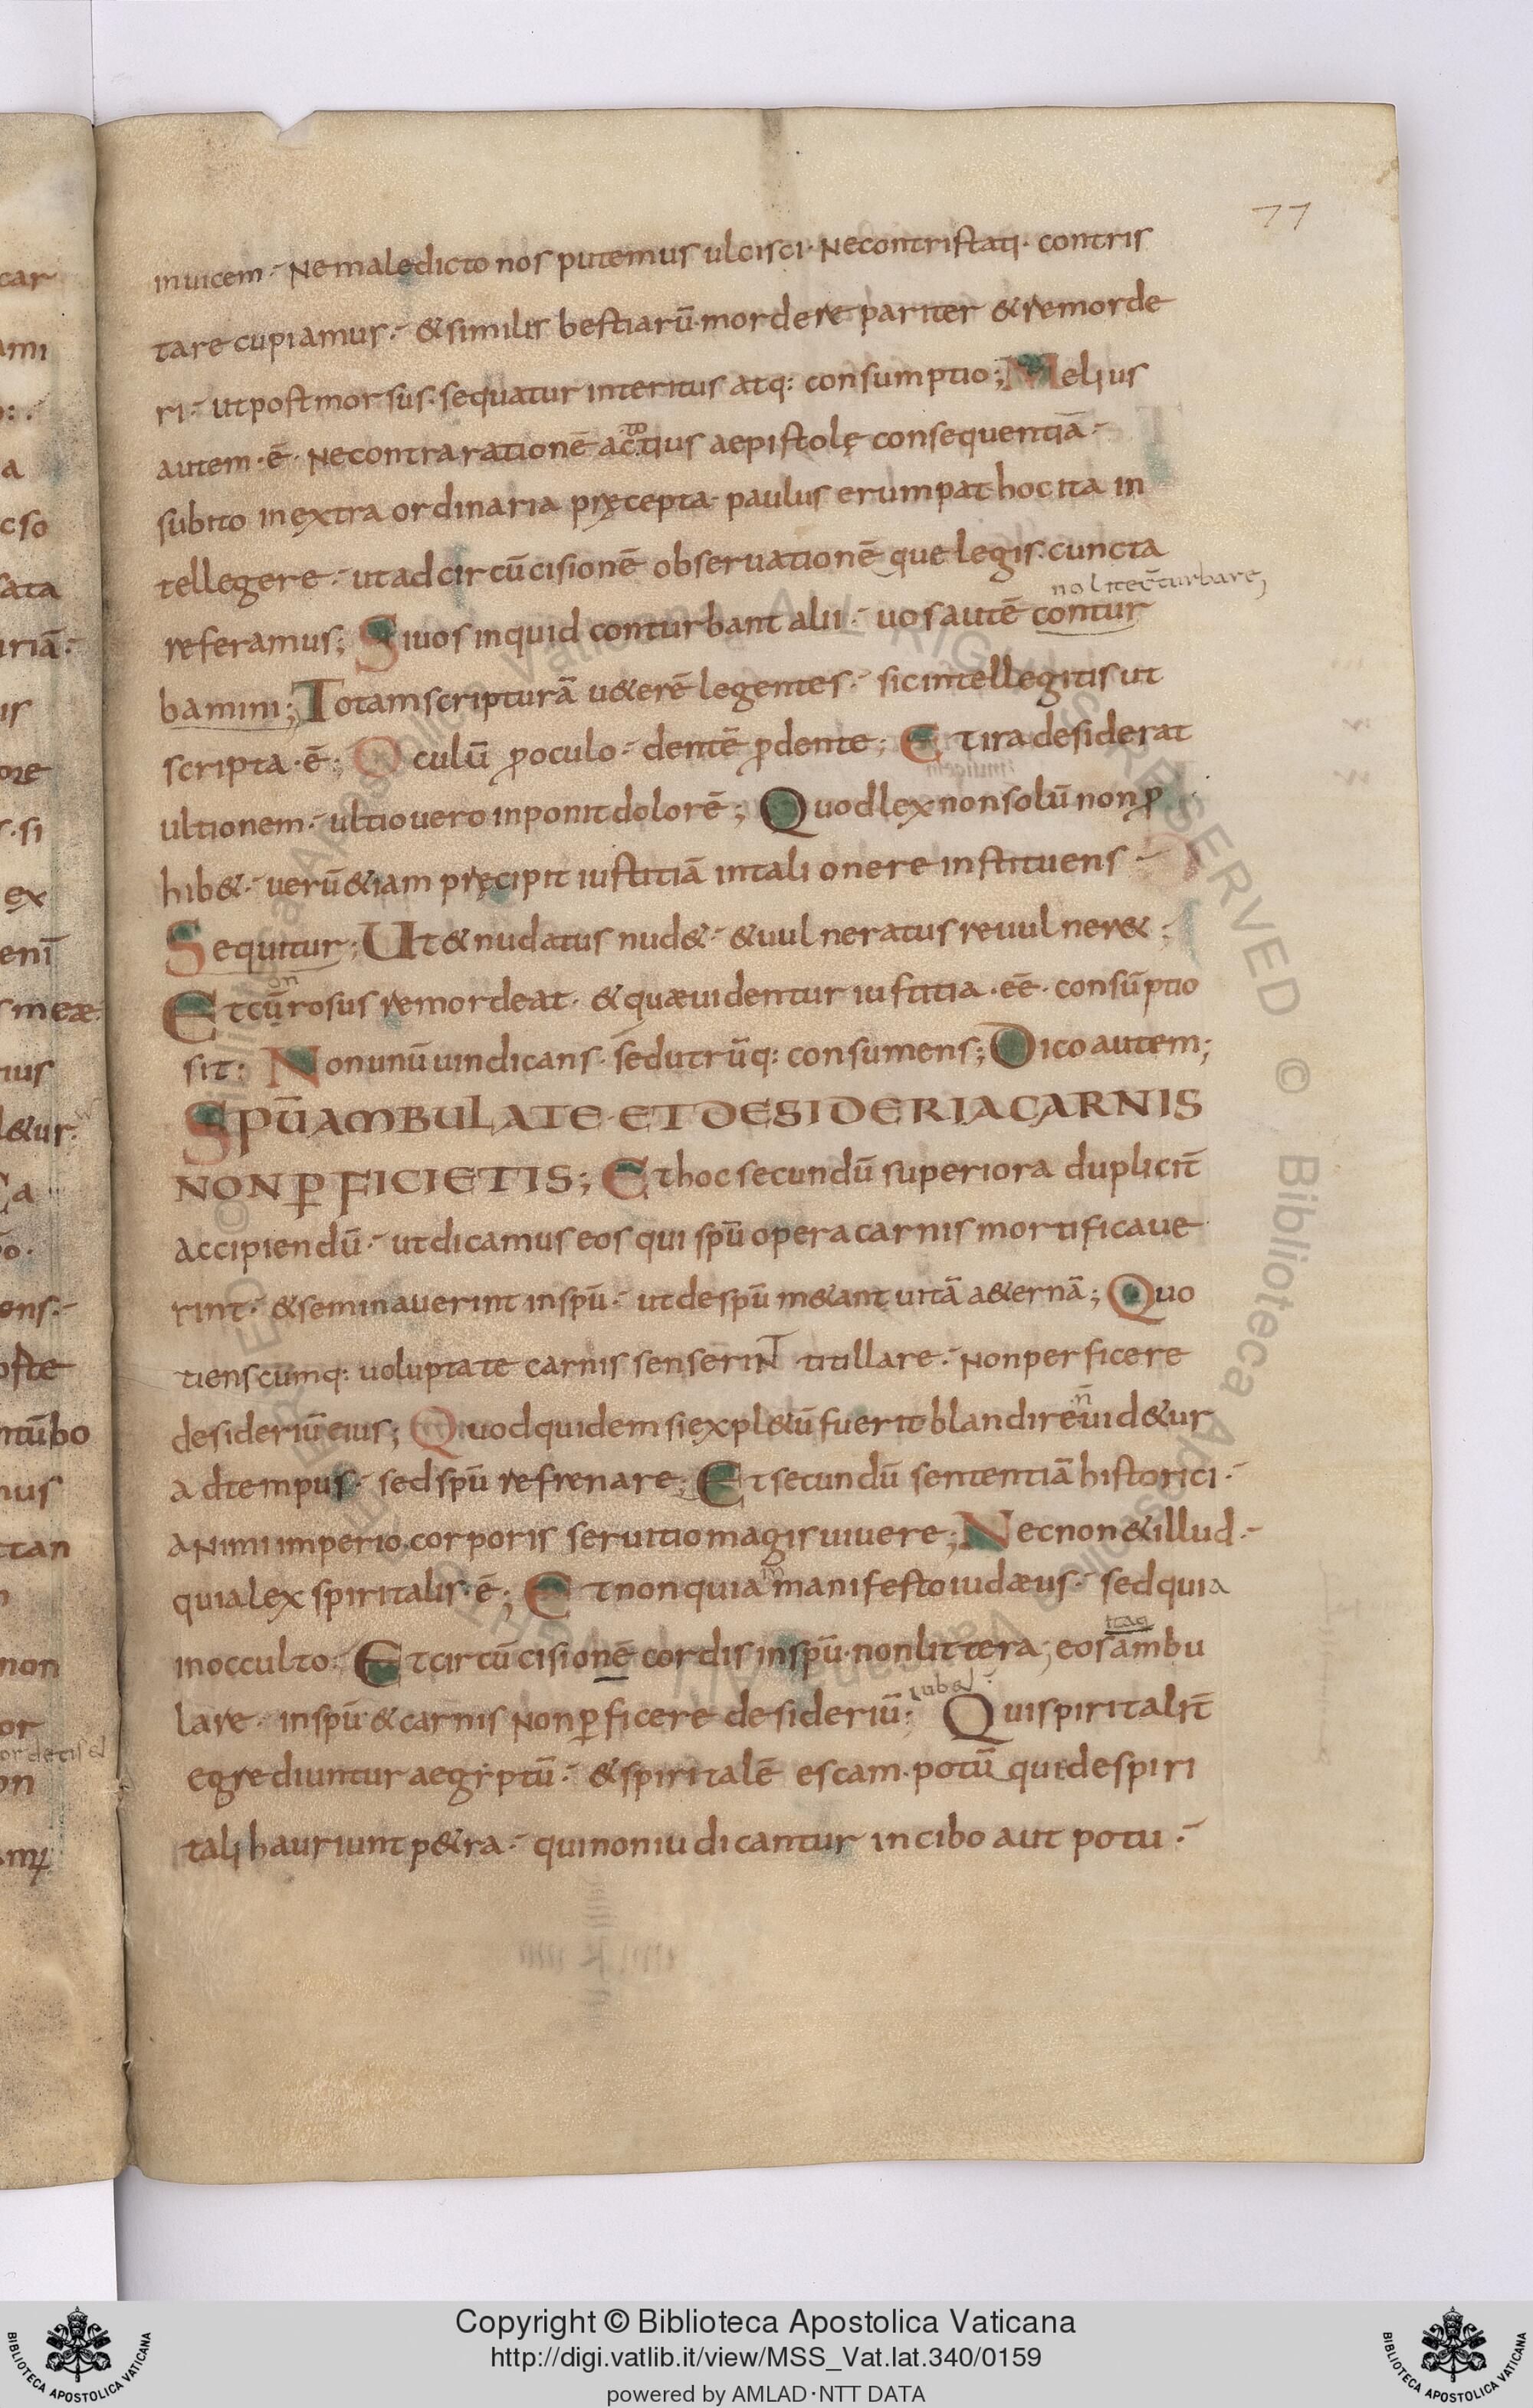 77
inuicem·- Nemaledicto nos putemus ulcisci· Necontristati· contris
tare cupiamus·- &similis bestiarū·mordere pariter &remorde
ri·- utpostmorsus·sequatur interitus atq: consumptio; Melius
autem·ē· Necontrarationē ac totius aepistolę consequentiā·-
subito inextra ordinaria pręcepta· paulus erumpat·hoc ita in
tellegere·- utadcircūcisionē obseruationē que legis·cuncta
nolitecturbare
referamus; Siuos inquid conturbant alii·- uos autē contur
bamini; Totamscripturā u&erē legentes·- sicintellegitis ut
scripta·ē; Oculū ꝓoculo·- dentē ꝓdente; Et ira desiderat
ultionem·- ultiouero inponit dolorē; Quodlex nonsolū nonꝓ
hib&·- uerū&iam pręcipit iustitiā intali onere instituens·-
Sequitur; Ut&nudatus nud&·- &uulneratus reuulner&·-
on
Etcūrosus remordeat· &quæuidentur iustitia·eē· consūptio
sit: Nonunū uindicans· sedutrūq: consumens; Dico autem;
SPŪAMBULATE·ETDESIDERIACARNIS
NONꝑFICIETIS; Ethoc secundū superiora duplicit̄
accipiendū·- utdicamus eos qui spū opera carnis mortificaue
rint·- &seminauerint inspū·- utdespū m&ant uitā a&ernā; Quo
tienscumq: uoluptate carnis senserint titillare·- Nonperficere
desideriū eius; Quodquidem siexpl&ū fuerit blandire n̄ uid&ur
adtempus·- sedspū refrenare; Etsecundū sententiā historici·-
animi imperio·corporis seruitio magis uiuere; Necnon&illud·-
quialex spiritalis·ē; Etnonquia m manifesto iudæus·- sedquia
inocculto· Etcircūcisionē cordis inspū·nonlittera; eos itaq ambu
lare· inspū &carnis Nonꝑficere desideriū; iubet·- Quispiritalit̄
egrediuntur aegiptū·- &spiritalē escam·potū quedespiri
tali hauriunt p&ra·- quinoniudicantur incibo aut potu·-
Copyright © Biblioteca Apostolica Vaticana
http://digi.vatlib.it/view/MSS_Vat.lat.340/0159
powered by AMLAD·NTT DATA
BIBLIOTECA APOSTOLICA VATICANA
BIBLIOTECA APOSTOLICA VATICANA